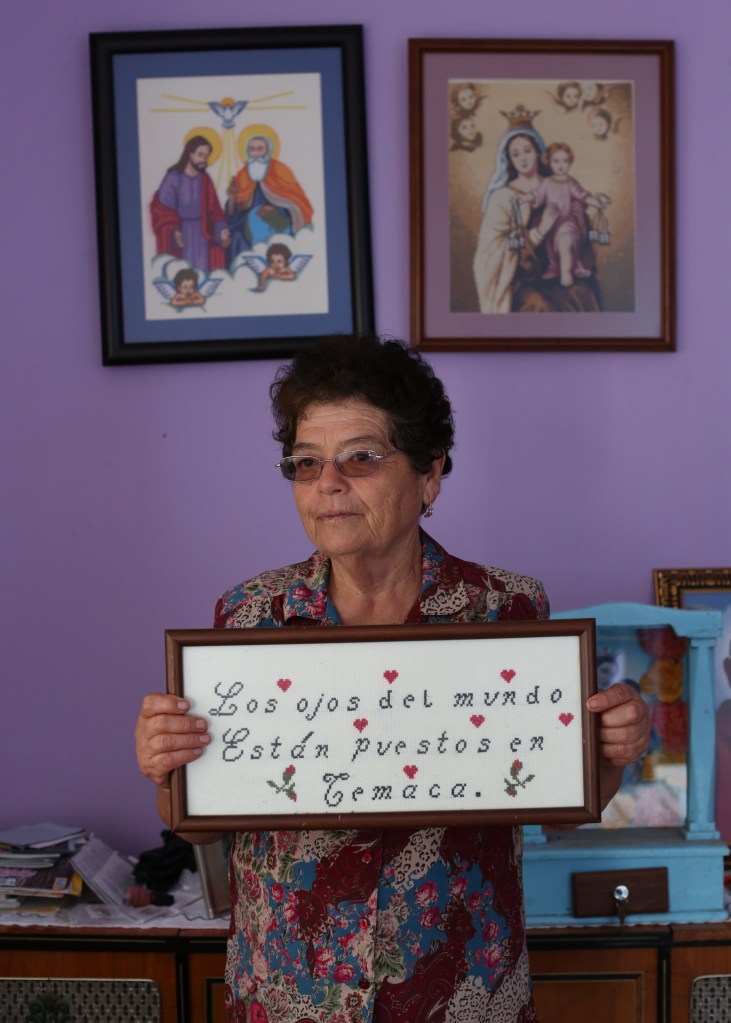 Los ojos del mundo
Están puestos en
Temaca.